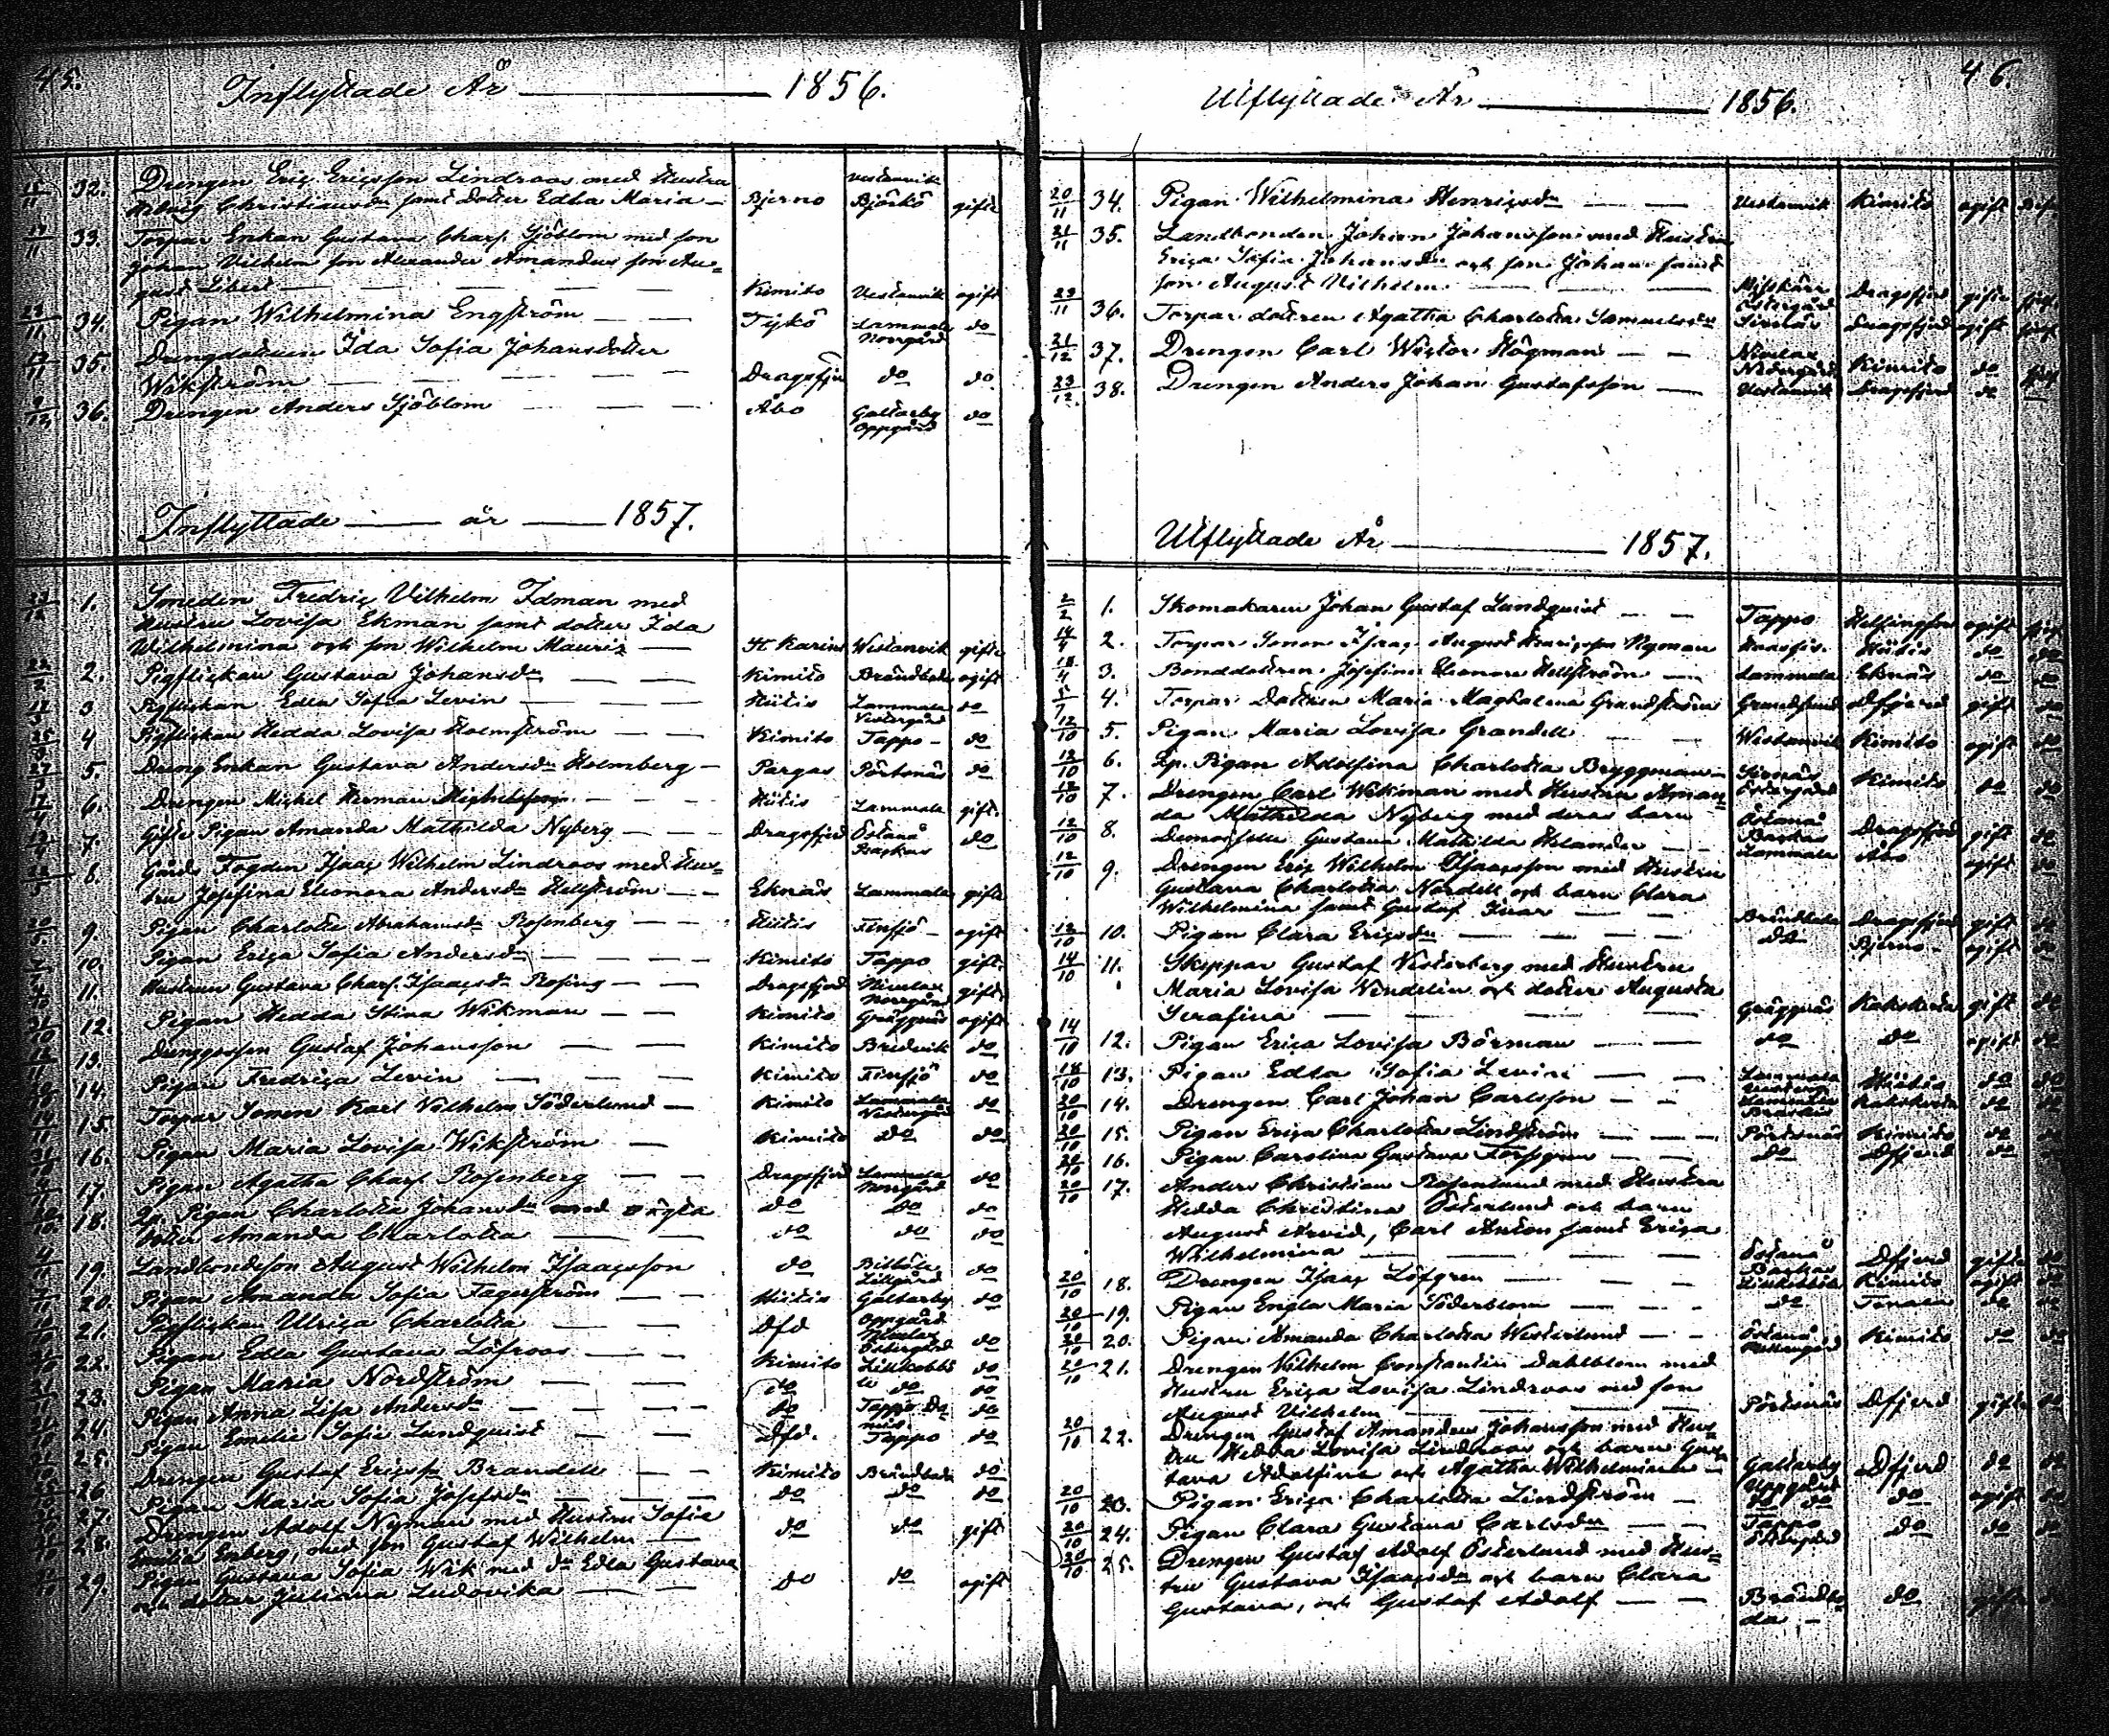 45.
Inflyttade År 1856.
32. Drengen Eric Ericsson Lindroos med Hustru Vestanvik
Hedvig Christiansdr samt dotter Edla Maria Bjerno Björkö gifte
33. Torpar Enkan Gustava Charl. Sjöblom med son
Johan Vilhelm son Alexander Amandus son Au-
gust Libert Kimito Vestanvik ogift
34. Pigan Wilhelmina Engström Tykö Lammala Norrgård do
35. Drengdottren Ida Sofia Johansdotter
Wikström Dragsfjerd do do
36. Drengen Anders Sjöblom Åbo Galtarby Oppgård do
Inflyttade år 1857.
1. Smeden Fredric Vilhelm Idman med
Hustru Lovisa Ekman samt dotter Ida
Wilhelmina och son Wilhelm Mauriz St Karins Westanvik gifte
2. Pigflickan Gustava Johansdr Kimito Brändboda ogift
3 Pigflickan Edla Sofia Levin Hiitis Lammala Vestergård do
4 Pigflickan Hedda Lovisa Holmström Kimito Tappo do
5. Dreng Enkan Gustava Andersdr Holmberg Pargas Pörtsnäs do
6. Drengen Mickel Herman Michelsson Hiitis Lammala gift.
7. Gifte Pigan Amanda Mathilda Nyberg Dragsfjerd Östanå Backas do
8. Gårds Fogden Isaac Wilhelm Lindroos med Hus-
tru Josefina Eleonora Andersdr Hellström Eknäs Lammala gifte
9. Pigan Charlotta Abrahamsdr Rosenberg Hiitis Finsjö ogift
10. Pigan Erica Sofia Andersdr Kimito Tappo gift.
11. Hustrun Gustava Charl. Isaacsdr Rosing Dragsfjerd Norrgård gift.
12. Pigan Hedda Stina Wikman Kimito Gräggnäs ogift
13. Drengsson Gustaf Johansson Kimito Bredvik do
14. Pigan Fredrica Levin Kimito Finsjö do
15. Torpar Sonen Karl Vilhelm Söderlund Kimito Lammala Vestergård do
16. Pigan Maria Lovisa Wikström Kimito do do
17. Pigan Agatha Charl. Rosenberg Dragsfjerd Lammala Norrgård do
18. Lp. Pigan Charlotta Johansdr med oägta do do do
dotter Amanda Charlotta do do do
19. Landbondeson August Wilhelm Isaacsson do Billböle Lillgård do
20. Pigan Amanda Sofia Fagerström Hiitis Galtarby Oppgård do
21. Pigflickan Ulrica Charlotta Dfd Östergård do
22. Pigan Edla Gustava Löfroos Kimito do
23. Pigan Maria Nordström do do do
24. Pigan Anna Lisa Andersdr do Tappo do
25. Pigan Emelie Sofie Lundquist Dfd. Tappo do
26. Drengen Gustaf Ericss. Brandell Kimito Brändboda do
27. Pigan Maria Sofia Josefsdr do do do
28. Drengen Adolf Nyman med Hustru Sofia
Emelia Enberg, med son Gustaf Wilhelm do do gift
29. Pigan Gustava Sofia Wik med dr Edla Gustava
och dotter Juliana Ludovika do do ogift
46.
Utflyttade År 1856.
20/11 34. Pigan Wilhelmina Henricsdr Vestanvik Kimito ogift
21/11 35. Landbonden Johan Johansson med Hustru
Erica Sofia Johansdr och son Johan samt
son August Vilhelm Östergård Dragsfjerd gifte
23/11 36. Torpar dottren Agatha Charlotta Samuelsdr Dragsfjerd ogift
21/12 37. Drengen Carl Wictor Högman Nedergård Kimito do
23/12 38. Drengen Anders Johan Gustafsson Vestanvik Dragsfjerd do
Utflyttade År 1857.
2/2 1. Skomakaren Johan Gustaf Lundquist Tappo Helsingfors ogift
14/4 2. Torpar Sonen Isaac August Henricsson Nyman Hiitis do do
18/4 3. Bonddottren Josefina Eleonora Hellström Lammala Eknäs do do
5/7 4. Torpar Dottren Maria Magdalena Grandström Dfjerd gift do
12/10 5. Pigan Maria Lovisa Grandell Westanvik Kimito ogift do
12/10 6. Lp. Pigan Adolfina Charlotta Bryggman Östergård Kimito do do
12/10 7. Drengen Carl Wikman med Hustru Aman-
da Mathilda Nyberg med deras barn Östanå Backas Dragsfjerd gift do
12/10 8. Demoiselle Gustava Mathilda Helander Lammala Åbo ogift do
12/10 9. Drengen Eric Wilhelm Isaacsson med Hustru
Gustava Charlotta Nordell och barn Clara
Wilhelmina samt Gustaf Ivar Brändboda Dragsfjerd gift do
12/10 10. Pigan Clara Ericsdr do Bjerno ogift do
14/10 11. Skeppar Gustaf Vesterberg med Hustru
Maria Lovisa Wendelin och dotter Augusta
Serafina Gräggnäs Kakskerta gift do
14/10 12. Pigan Erica Lovisa Börman do do ogift do
18/10 13. Pigan Edla Sofia Levin Lammala Hiitis do do
20/10 14. Drengen Carl Johan Carlsson Kakskerta do do
20/10 15. Pigan Erica Charlotta Lindström Pörtsnäs Kimito do do
20/10 16. Pigan Carolina Gustava Forsgren do Dfjerd do do
20/10 17. Anders Christian Rosenlund med Hustru
Hedda Christina Österlund och barn
August Arvid, Carl Anton samt Erica
Wilhelmina Östanå Backas Dfjerd gifte do
20/10 18. Drengen Isaac Löfgren Kimito ogift do
20/10 19. Pigan Engla Maria Söderblom do Tenala do do
20/10 20. Pigan Amanda Charlotta Westerlund Östanå Kimito do do
20/10 21. Drengen Vilhelm Constantin Dahlblom med
Hustru Erica Lovisa Lindroos med son
August Vilhelm Pörtsnäs Dfjerd gifte do
20/10 22. Drengen Gustaf Amandus Johansson med Hus-
tru Hedda Lovisa Lindroos och barn Gus-
tava Adolfina och Agatha Wilhelmina Galtarby Uppgård Dfjerd do do
20/10 23. Pigan Erica Charlotta Lindström do do do ogift do
20/10 24. Pigan Clara Gustava Carlsdr Tappo Östergård do do do
20/10 25. Drengen Gustaf Adolf Österlund med Hus-
tru Gustava Isaacsdr och barn Clara
Gustava, och Gustaf Adolf Brändbo-
da do gifte do